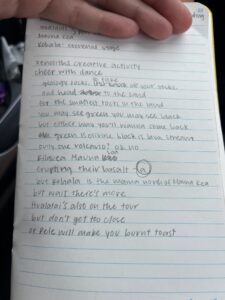 Mauna Kea
Kohala: erosional stage
Xenoliths creative activity
cheer with dance
geology rocks, so take off your socks
and head to the sand
for the smallest rocks in the land
You may see green you may see black
but either way you'll wanna come back
green is olivine, black is lava leftover
only one volcano? oh no
Kilauea Mauna Loa
erupting their basalt - a
but Kohala is the mama north of Mauna Kea
but wait there's more
Hualalai's also on the tour
but don't get too close
or Pele will make you burnt toast